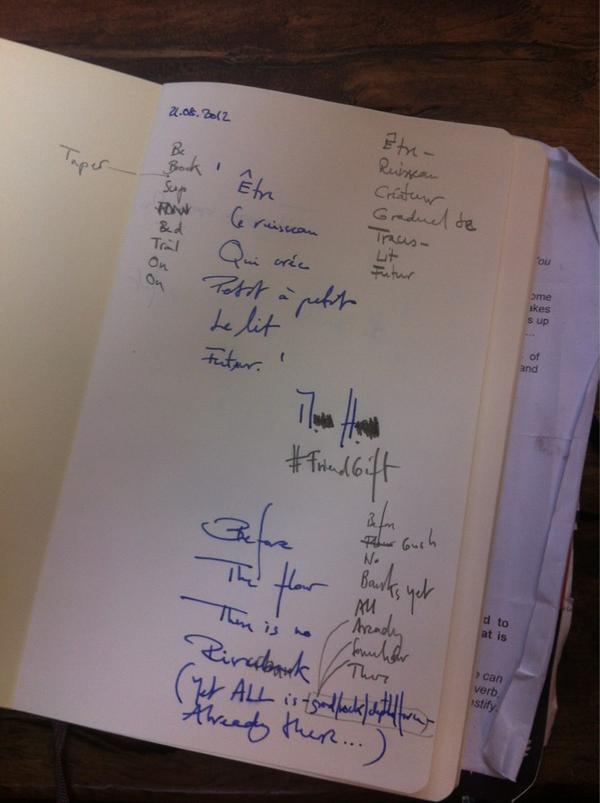 21.08.2012
Taper
Be
Brook
Step
Bed
Trail
On
On
Être
Le ruisseau
Qui crée
Petit à petit
Le lit
Futur.
Être -
Ruisseau
Créateur
Graduel de
Traces -
Lit
Futur
#FriendGift
Before
The flow
There is no
Riverbank
(Yet ALL is
Already there...)
Before
Gush
No
Banks, yet
All
Already
Somehow
There
You
ome
akes
s up
...
of
and
d to
at is
can
verb,
stify.